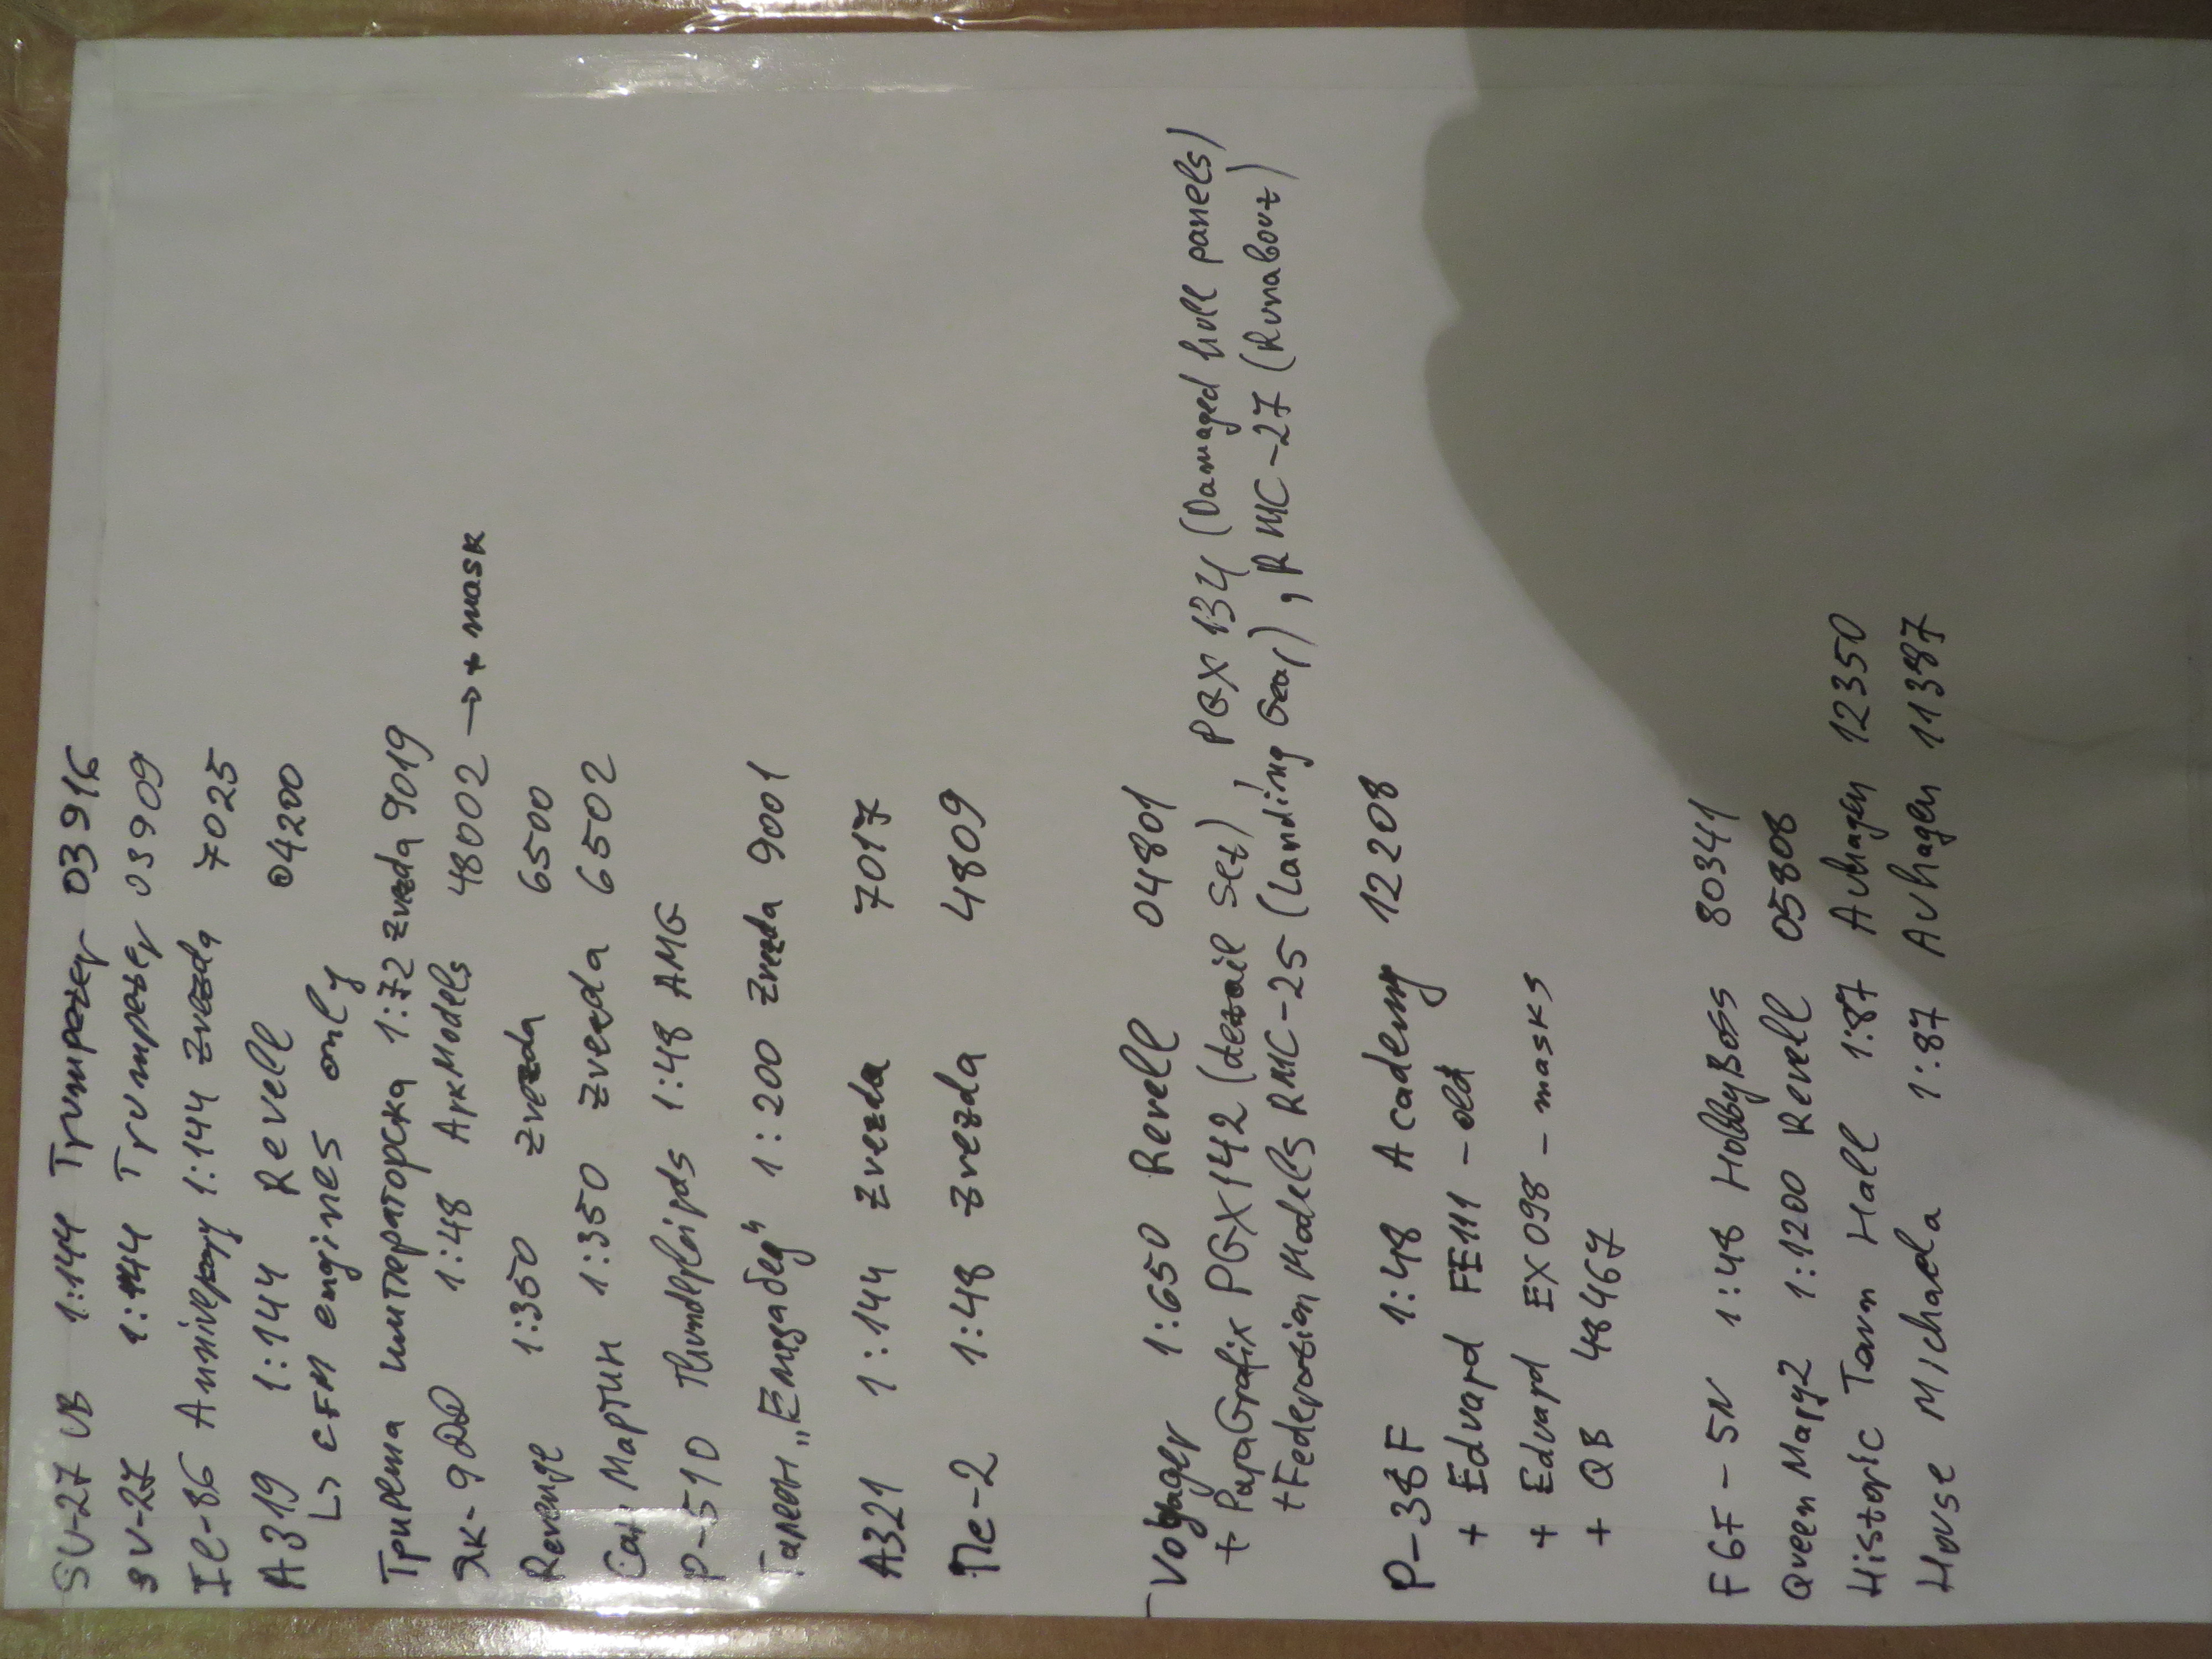 SU-27 UB 1:144 Trumpeter 03916
SU-27 1:144 Trumpeter 03909
IL-86 Anniversary 1:144 Zvezda 7025
A319 1:144 Revell 04200
↳ CFM engines only
Трирема императорска 1:72 Zvezda 9019
Як-9ДД 1:48 ArkModels 48002 → + mask
Revenge 1:350 Zvezda 6500
Сан Мартин 1:350 Zvezda 6502
P-51D Thunderbirds 1:48 AMG
Галеон „Елизабед“ 1:200 Zvezda 9001
A321 1:144 Zvezda 7017
Пе-2 1:48 Zvezda 4809
Voyager 1:650 Revell 04801
+ ParaGrafix PGX142 (detail set), PGX134 (Damaged hull panels)
+ Federation Models RMC-25 (Landing Gear), RMC-27 (Runabout)
P-38F 1:48 Academy 12208
+ Eduard FE111 - old
+ Eduard EX098 - masks
+ QB 48467
F6F-5N 1:48 HobbyBoss 80341
Queen Mary2 1:1200 Revell 05808
Historic Town Hall 1:87 Auhagen 12350
House Michaela 1:87 Auhagen 11387